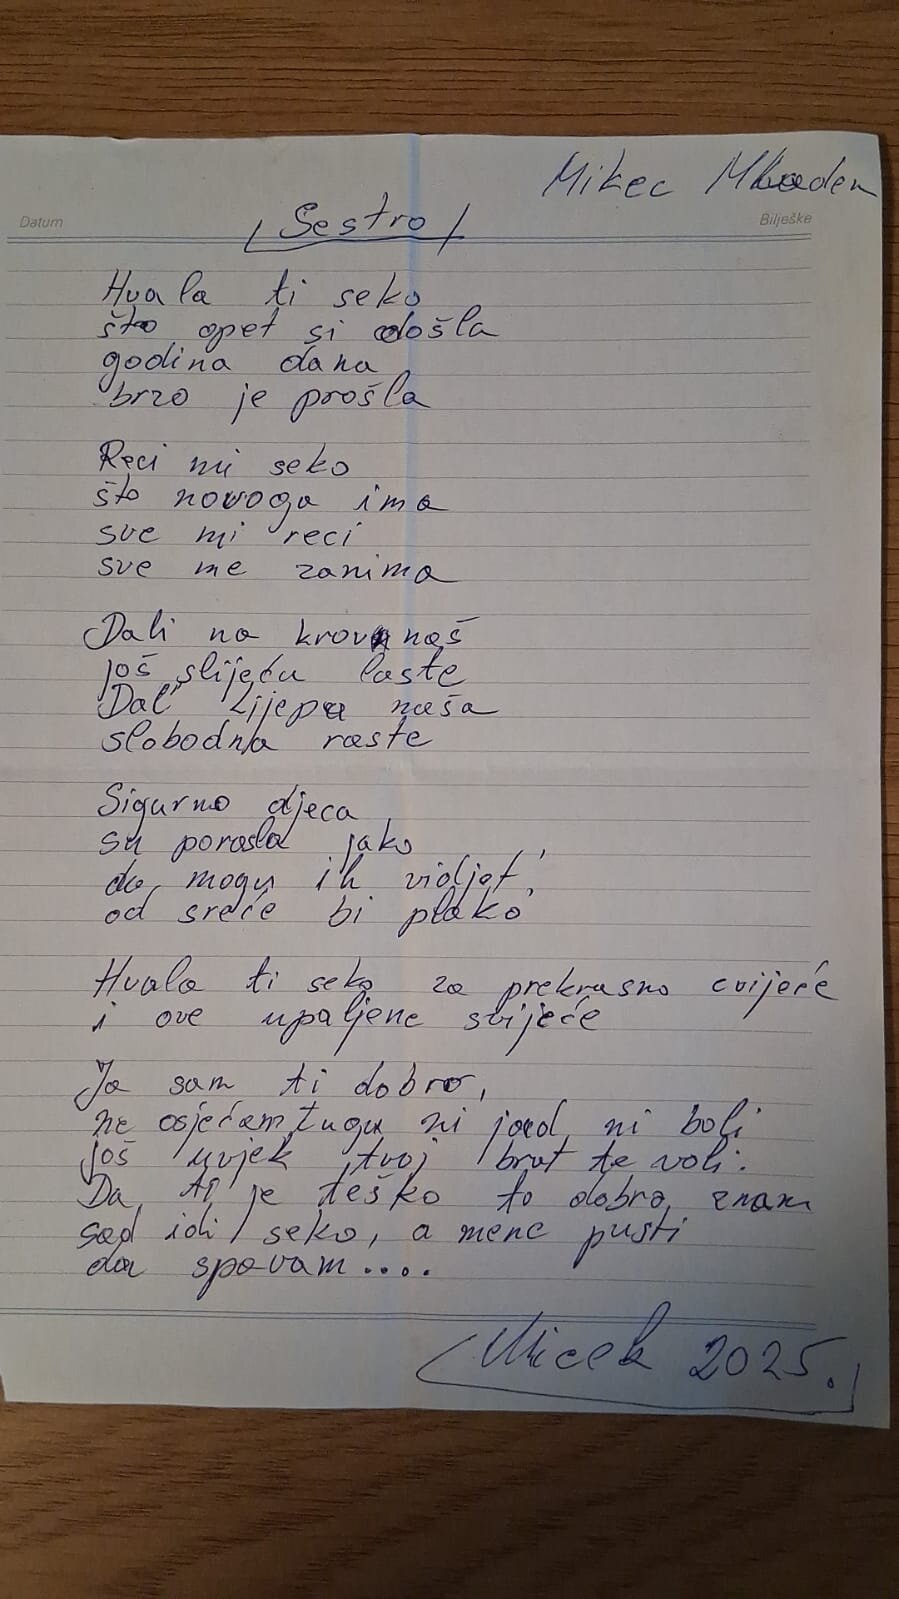 Mikec Mladen
Datum
Bilješke
/ Sestro /
Hvala ti seko
što opet si došla
godina dana
brzo je prošla
Reci mi seko
što novoga ima
sve mi reci
sve me zanima
Dali na krov naš
još slijeću laste
Dal' Lijepa naša
slobodna raste
Sigurno djeca
su porasla jako
da mogu ih vidjet'
od sreće bi plako'
Hvala ti seko za prekrasno cvijeće
i ove upaljene svijeće
Ja sam ti dobro,
ne osjećam tugu ni jad ni boli
još uvjek tvoj brat te voli.
Da ti je teško to dobro znam
sad idi seko, a mene pusti
da spavam....
Micek 2025.